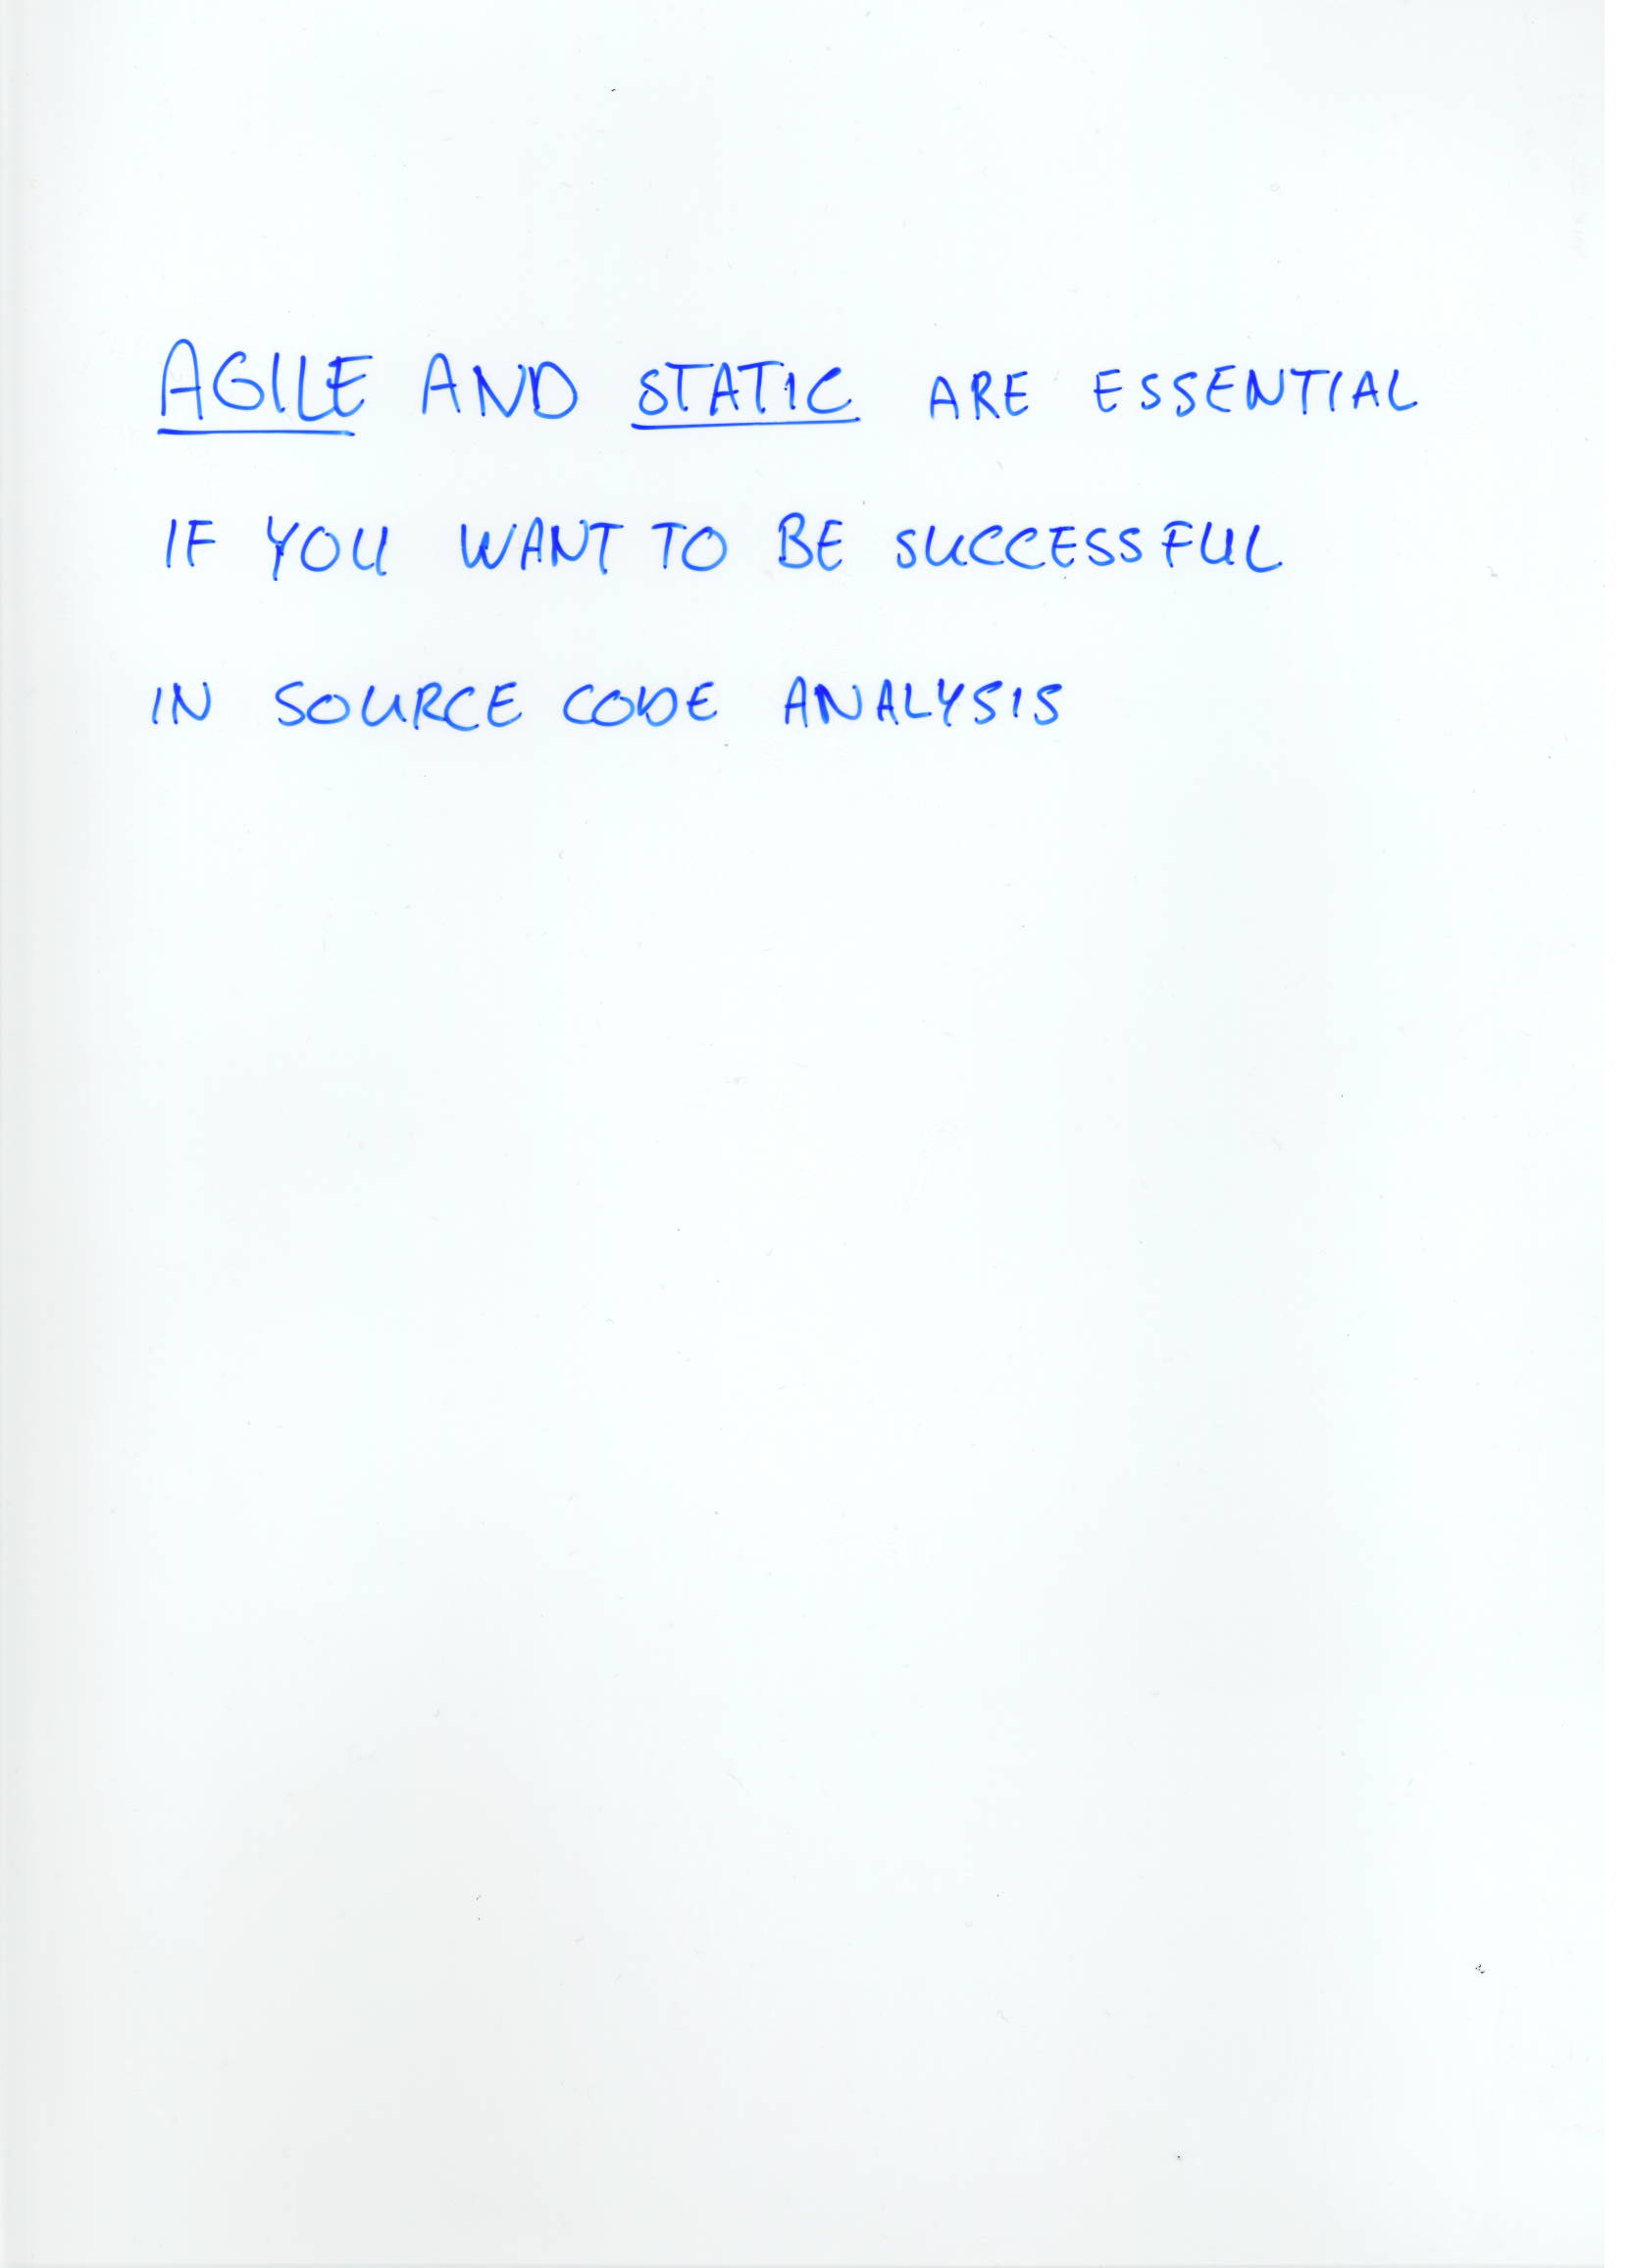 AGILE AND STATIC ARE ESSENTIAL
IF YOU WANT TO BE SUCCESSFUL
IN SOURCE CODE ANALYSIS